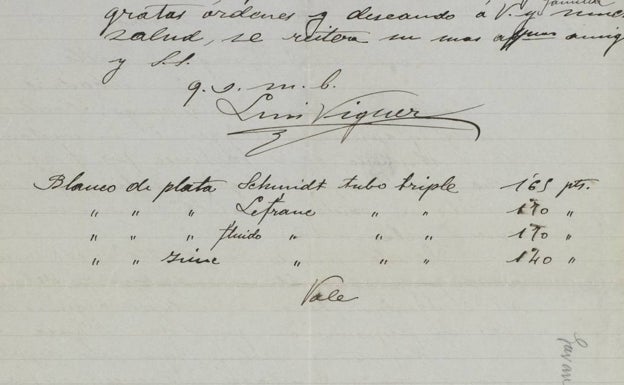 familia
gratas órdenes y deseando á V. y
salud, se reitera su mas amigo
y S.S.
q. s. m. b.
Luis Viguer
Blanco de plata Schmidt tubo triple 1'65 pts.
" " " Lefranc " " 1'70 "
" " " fluido " " " 1'70 "
" " zinc " " " 1'40 "
Vale